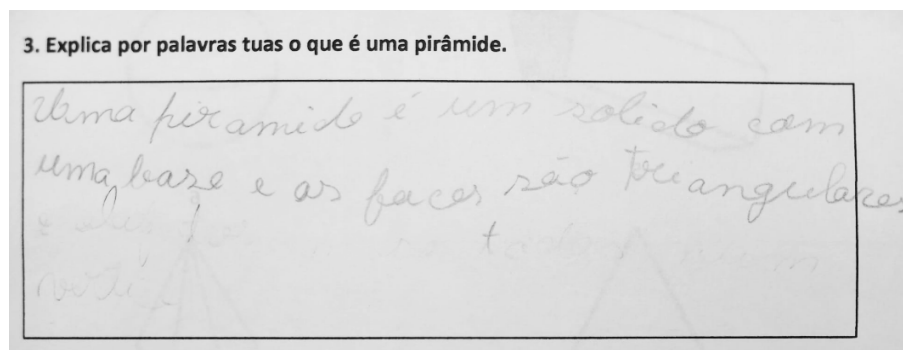 3. Explica por palavras tuas o que é uma pirâmide.
Uma piramide é um solido com
uma base e as faces são triangulares